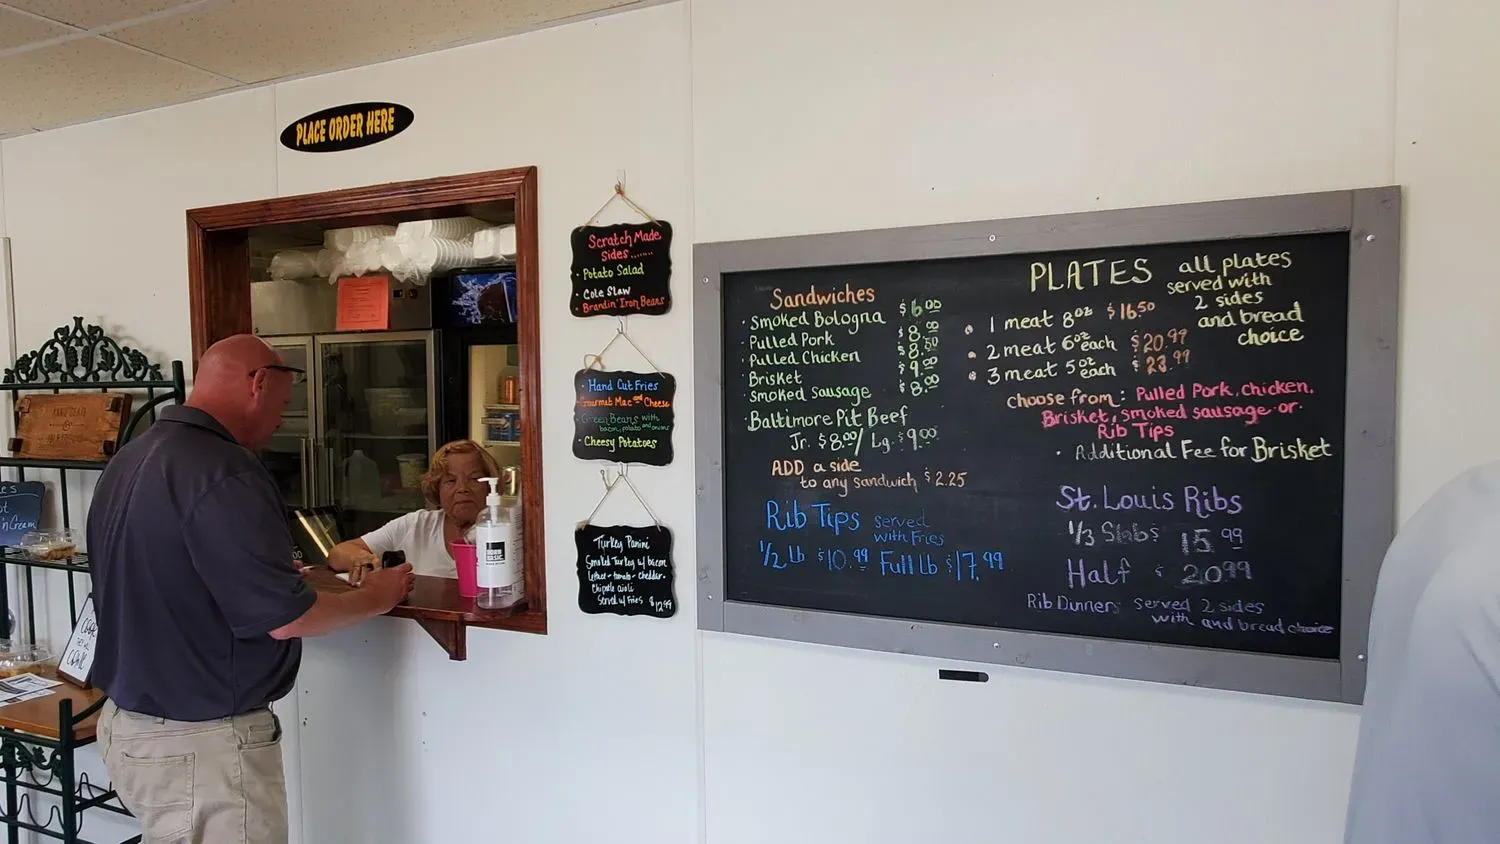 PLACE ORDER HERE
Scratch Made
Sides.......
• Potato Salad
• Cole Slaw
• Brandin' Iron Beans
• Hand Cut Fries
• Gourmet Mac and Cheese
• Green Beans with
bacon, potato and onions
• Cheesy Potatoes
Turkey Panini
Smoked Turkey w/ bacon
lettuce - tomato - cheddar -
Chipotle aioli
Served w/ Fries $12.99
Sandwiches
• Smoked Bologna $6.00
• Pulled Pork $8.00
• Pulled Chicken $8.50
• Brisket $9.00
• Smoked Sausage $8.00
• Baltimore Pit Beef
Jr. $8.00/ Lg. $9.00
ADD a side
to any sandwich $2.25
Rib Tips served
with Fries
1/2 Lb $10.99 Full Lb $17.99
PLATES all plates
served with
2 sides
and bread
choice
• 1 meat 8oz $16.50
• 2 meat 6oz each $20.99
• 3 meat 5oz each $23.99
choose from: Pulled Pork, chicken,
Brisket, smoked sausage or
Rib Tips
• Additional Fee for Brisket
St. Louis Ribs
1/3 Slab $ 15.99
Half $ 20.99
Rib Dinners served 2 sides
with and bread choice